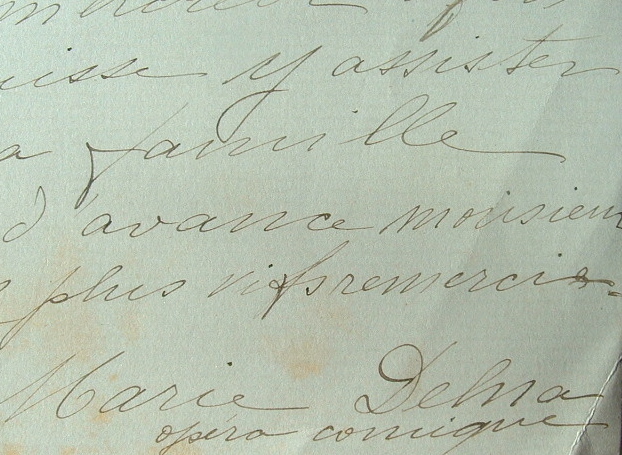 uisse y assister
a famille
d'avance monsieur
plus vifs remercie-
Marie Delna
opéra comique